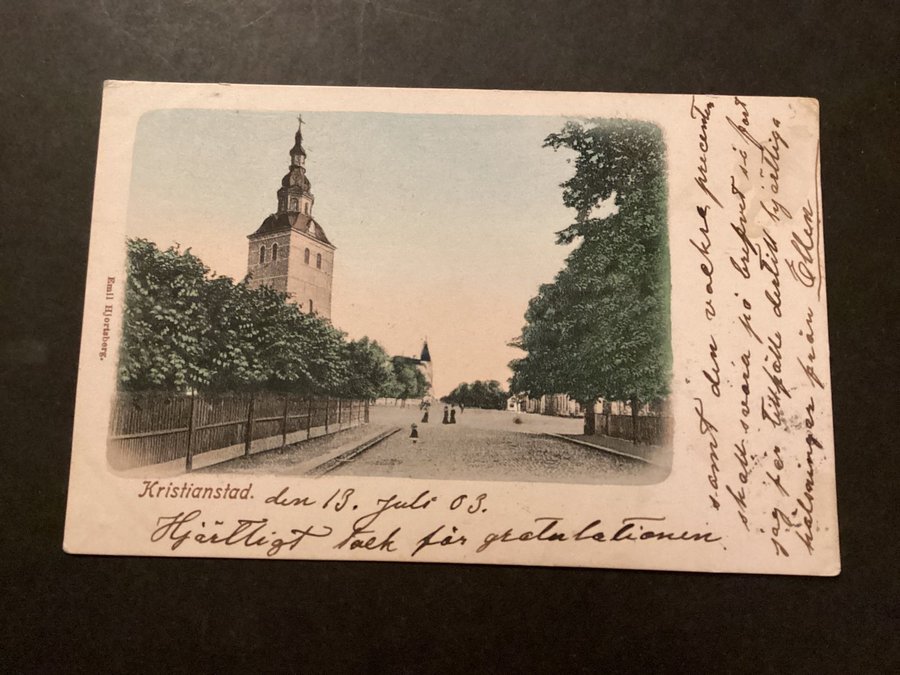 Emil Hjortsberg.
Kristianstad. den 13. Juli 03.
Hjärtligt Tack för gratulationen
samt den vackra precenten
skall svara på brefvet så fort
jag får tillfälle dertill hjärtliga
hälsningar från Ellen